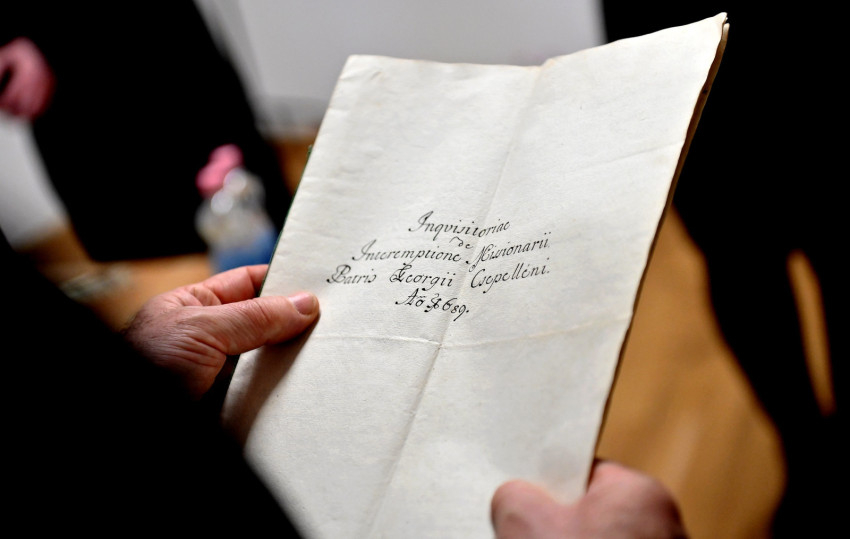 Inqvisitoriae
de
Interemptione Missionarii
Patris Georgii Csepelléni.
Aõ 1689.